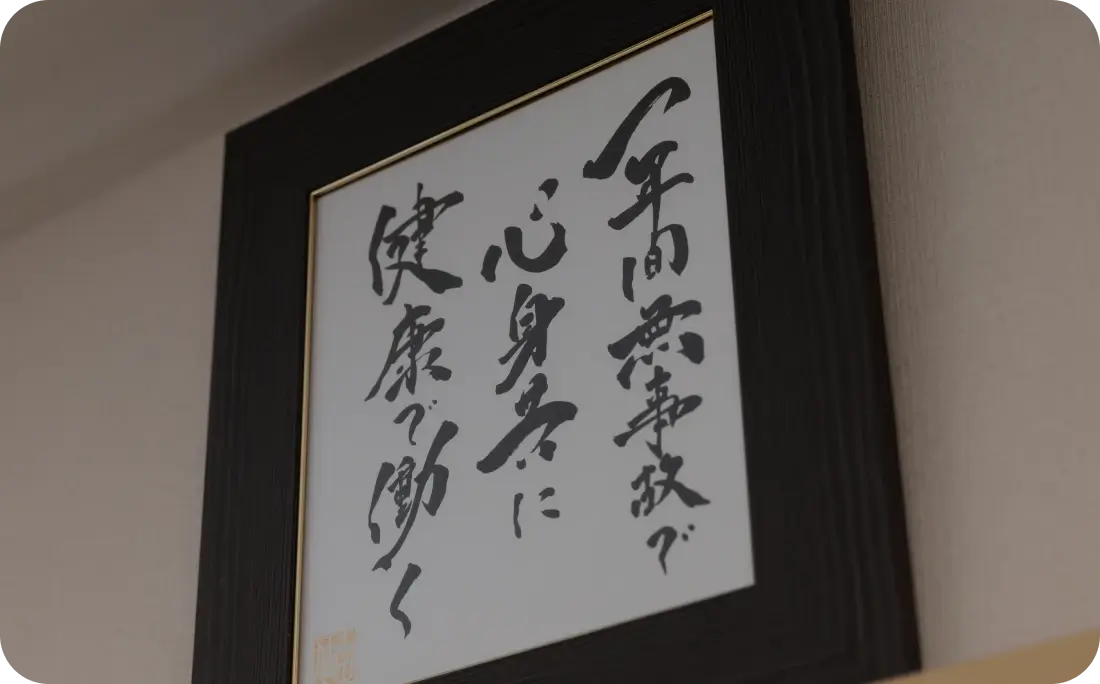 一年間無事故で
心身共に
健康で働く